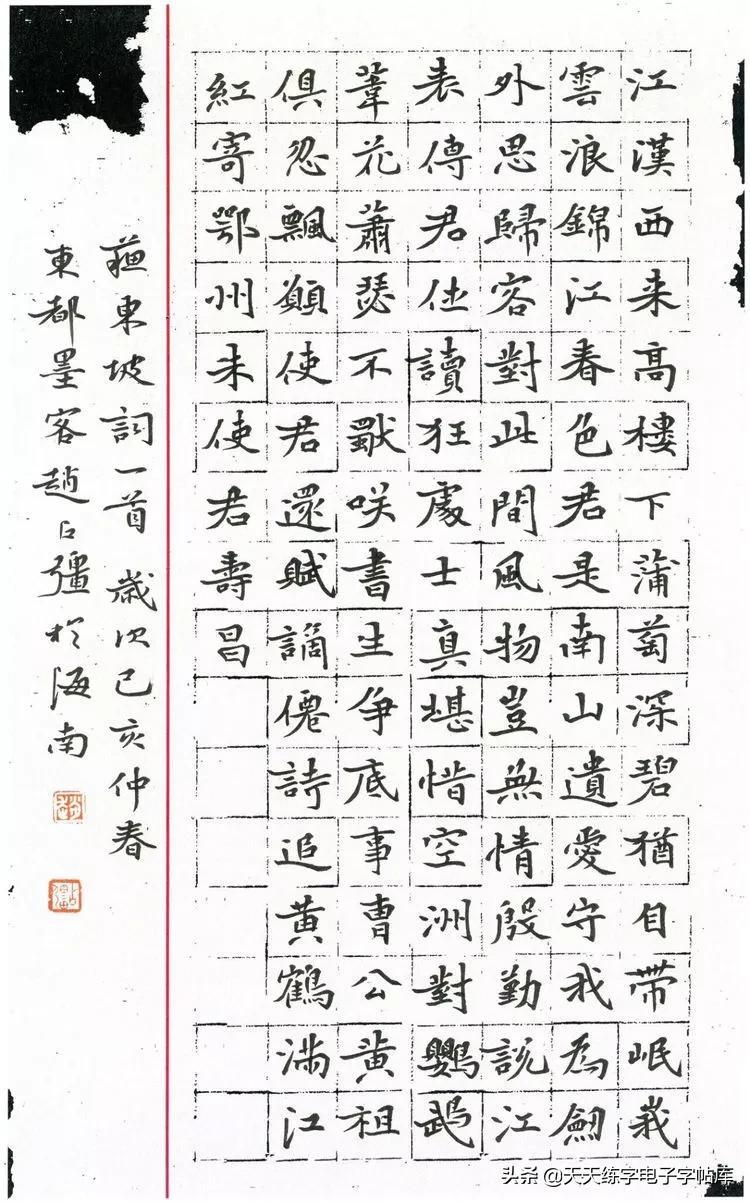 江漢西来高樓下蒲萄深碧猶自帶岷峩
雲浪錦江春色君是南山遺愛守我為劒
外思歸客對此間風物豈無情殷勤説江
表傳君休讀狂處士真堪惜空洲對鸚鵡
葦花蕭瑟不獨咲書生爭底事曹公黄祖
俱忽飄願使君還賦謫僊詩追黄鶴滿江
紅寄鄂州朱使君壽昌
蘇東坡詞一首 歲次己亥仲春
東都墨客趙占彊於海南
头条 @天天练字电子字帖库